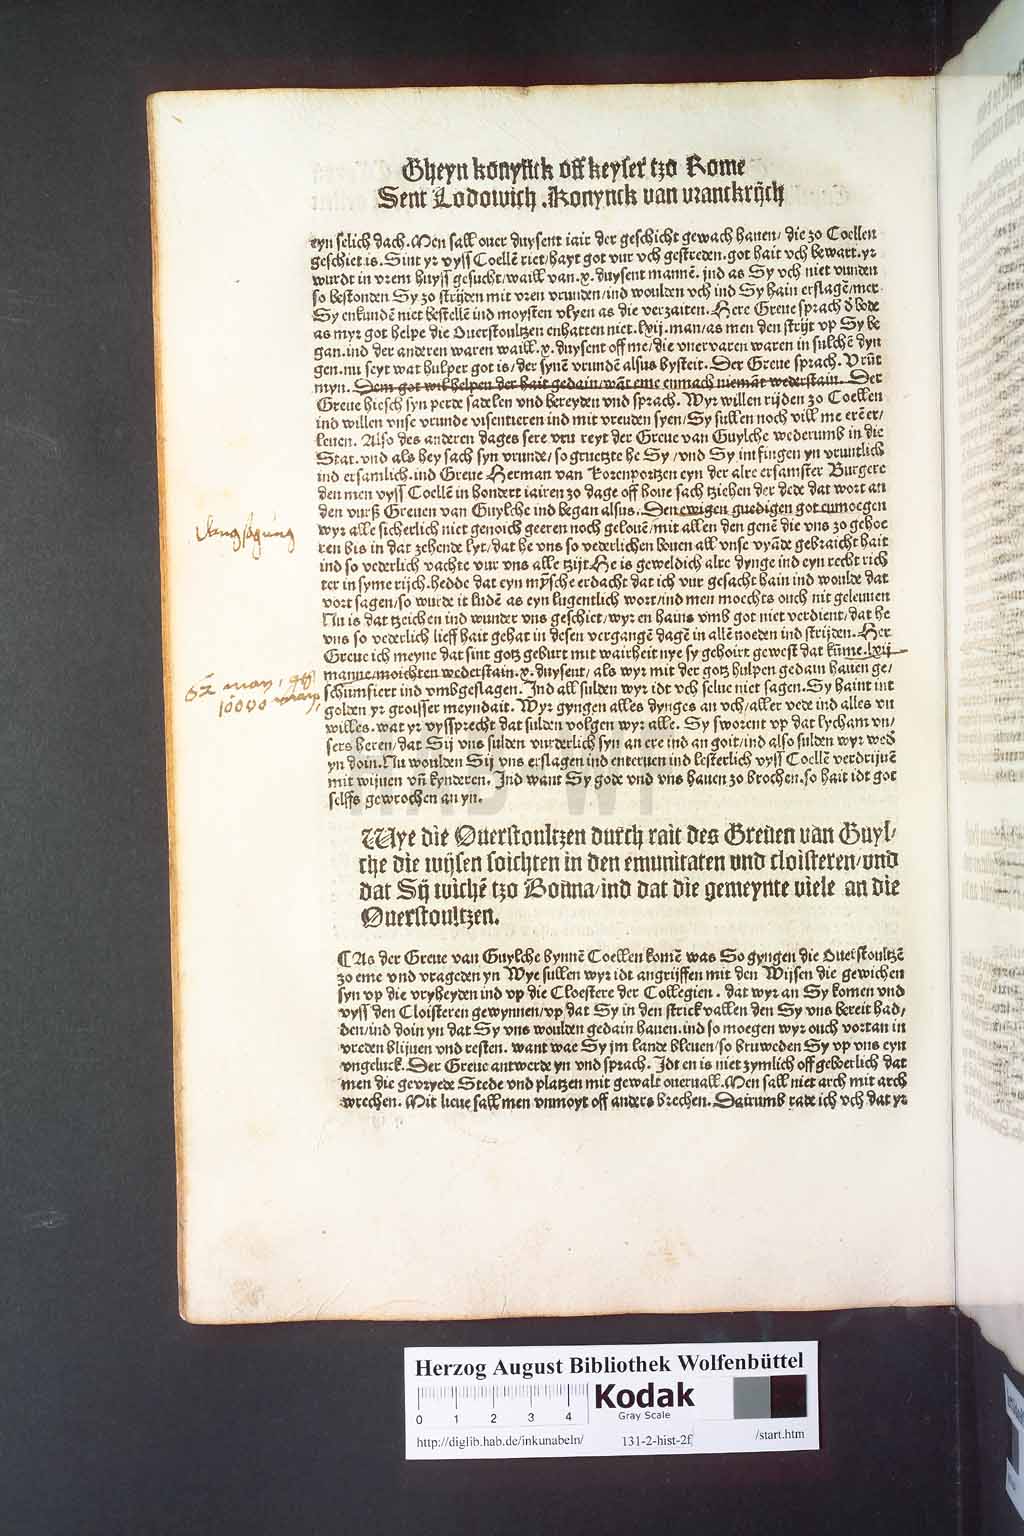 Gheyn konynck off keyser tzo Rome
Sent Lodowich .Konynck van vranckrijch
eyn selich dach. Men sall ouer duysent iair der geschicht gewach hauen/ die zo Coellen
geschiet is. Sint yr vyss Coellē riet/hayt got vur vch gestreden. got hait vch bewart. yr
wurdt in vrem huyss gesucht/waill van .x. duysent mannē. ind as Sy vch niet vunden
so bestonden Sy zo strijden mit vren vrunden/ind woulden vch ind Sy hain erslagē/mer
Sy enkundē niet bestellē ind moysten vlyen as die verzaiten. Here Greue sprach d' bode
as myr got helpe die Ouerstoultzen enhatten niet .lxij. man/as men den strijt vp Sy be
gan. ind der anderen waren waill .x. duysent off me/die vnervaren waren in sulchē dyn
gen. nu seyt wat hulper got is/der synē vrundē alsus bysteit. Der Greue sprach. Vrūt
myn. Dem got wil helpen der hait gedain/wāt eme enmach niemāt wederstain. Der
Greue hiesch syn perde sadelen vnd bereyden vnd sprach. Wyr willen rijden zo Coellen
ind willen vnse vrunde visentieren ind mit vreuden syen/Sy sullen noch vill me erē er/
leuen. Also des anderen dages sere vru reyt der Greue van Guylche wederumb in die
Stat. vnd als hey sach syn vrunde/so gruetzte he Sy/vnd Sy intfingen yn vruntlich
ind ersamlich. ind Greue Herman van Rorenportzen eyn der alre ersamster Burgere
den men vyss Coellē in hondert iairen zo dage off houe sach tziehen der dede dat wort an
den vurß Greuen van Guylche ind began alsus. Den ewigen guedigen got enmoegen
wyr alle sicherlich niet genoich geeren noch gelouē/mit allen den genē die vns zo gehoe
ren bis in dat zehende lyt/dat he vns so vederlichen bouen all vnse vyāde gebraicht hait
ind so vederlich vachte vur vns alle tzijt. He is geweldich alre dynge ind eyn recht rich
ter in syme rijch. hedde dat eyn mȳsche erdacht dat ich vur gesacht hain ind woulde dat
vort sagen/so wurde it ludē as eyn lugentlich wort/ind men moechts ouch nit geleuuen
Nu is dat tzeichen ind wunder vns geschiet/wyr en hains vmb got niet verdient/dat he
vns so vederlich lieff hait gehat in desen vergangē dagē in allē noeden ind strijden. Her
Greue ich meyne dat sint gotz geburt mit wairheit nye sy gehoirt gewest dat kūme .lxij
manne/moichten wederstain .x. duysent/ als wyr mit der gotz hulpen gedain hauen ge/
schumfiert ind vmbgeslagen. Ind all sulden wyr idt vch selue niet sagen. Sy haint int
golden yr groisser meyndait. Wyr gyngen alles dynges an vch/aller vede ind alles vn
willes. wat yr vyssprecht dat sulden volgen wyr alle. Sy sworent vp dat lycham vn/
sers heren/dat Sij vns sulden vurderlich syn an ere ind an goit/ind also sulden wyr wed'
yn doin. Nu woulden Sij vns erslagen ind enteruen ind lesterlich vyss Coellē verdrijuē
mit wijuen vn̄ kynderen. Ind want Sy gode vnd vns hauen zo brochen. so hait idt got
selffs gewrochen an yn.
62 man,
10000 man,
Wye die Ouerstoultzen durch rait des Greuen van Guyl/
che die wijsen soichten in den emunitaten vnd cloisteren/vnd
dat Sij wichē tzo Bonna/ind dat die gemeynte viele an die
Ouerstoultzen.
¶ As der Greue van Guylche bynnē Coellen komē was So gyngen die Ouerstoultzē
zo eme vnd vrageden yn Wye sullen wyr idt angrijffen mit den Wijsen die gewichen
syn vp die vryheyden ind vp die Cloestere der Collegien. dat wyr an Sy komen vnd
vyss den Cloisteren gewynnen/vp dat Sy in den strick vallen den Sy vns bereit had/
den/ind doin yn dat Sy vns woulden gedain hauen. ind so moegen wyr ouch vortan in
vreden blijuen vnd resten. want wae Sy jm lande bleuen/so bruweden Sy vp vns eyn
vngeluck. Der Greue antwerde yn vnd sprach. Idt en is niet zymlich off geboerlich dat
men die gevryede Stede vnd platzen mit gewalt ouervall. Men sall niet arch mit arch
wrechen. Mit lieue sall men vnmoyt off anders brechen. Dairumb rade ich vch dat yr
Herzog August Bibliothek Wolfenbüttel
0 1 2 3 4
Kodak
Gray Scale
http://diglib.hab.de/inkunabeln/ 131-2-hist-2f /start.htm